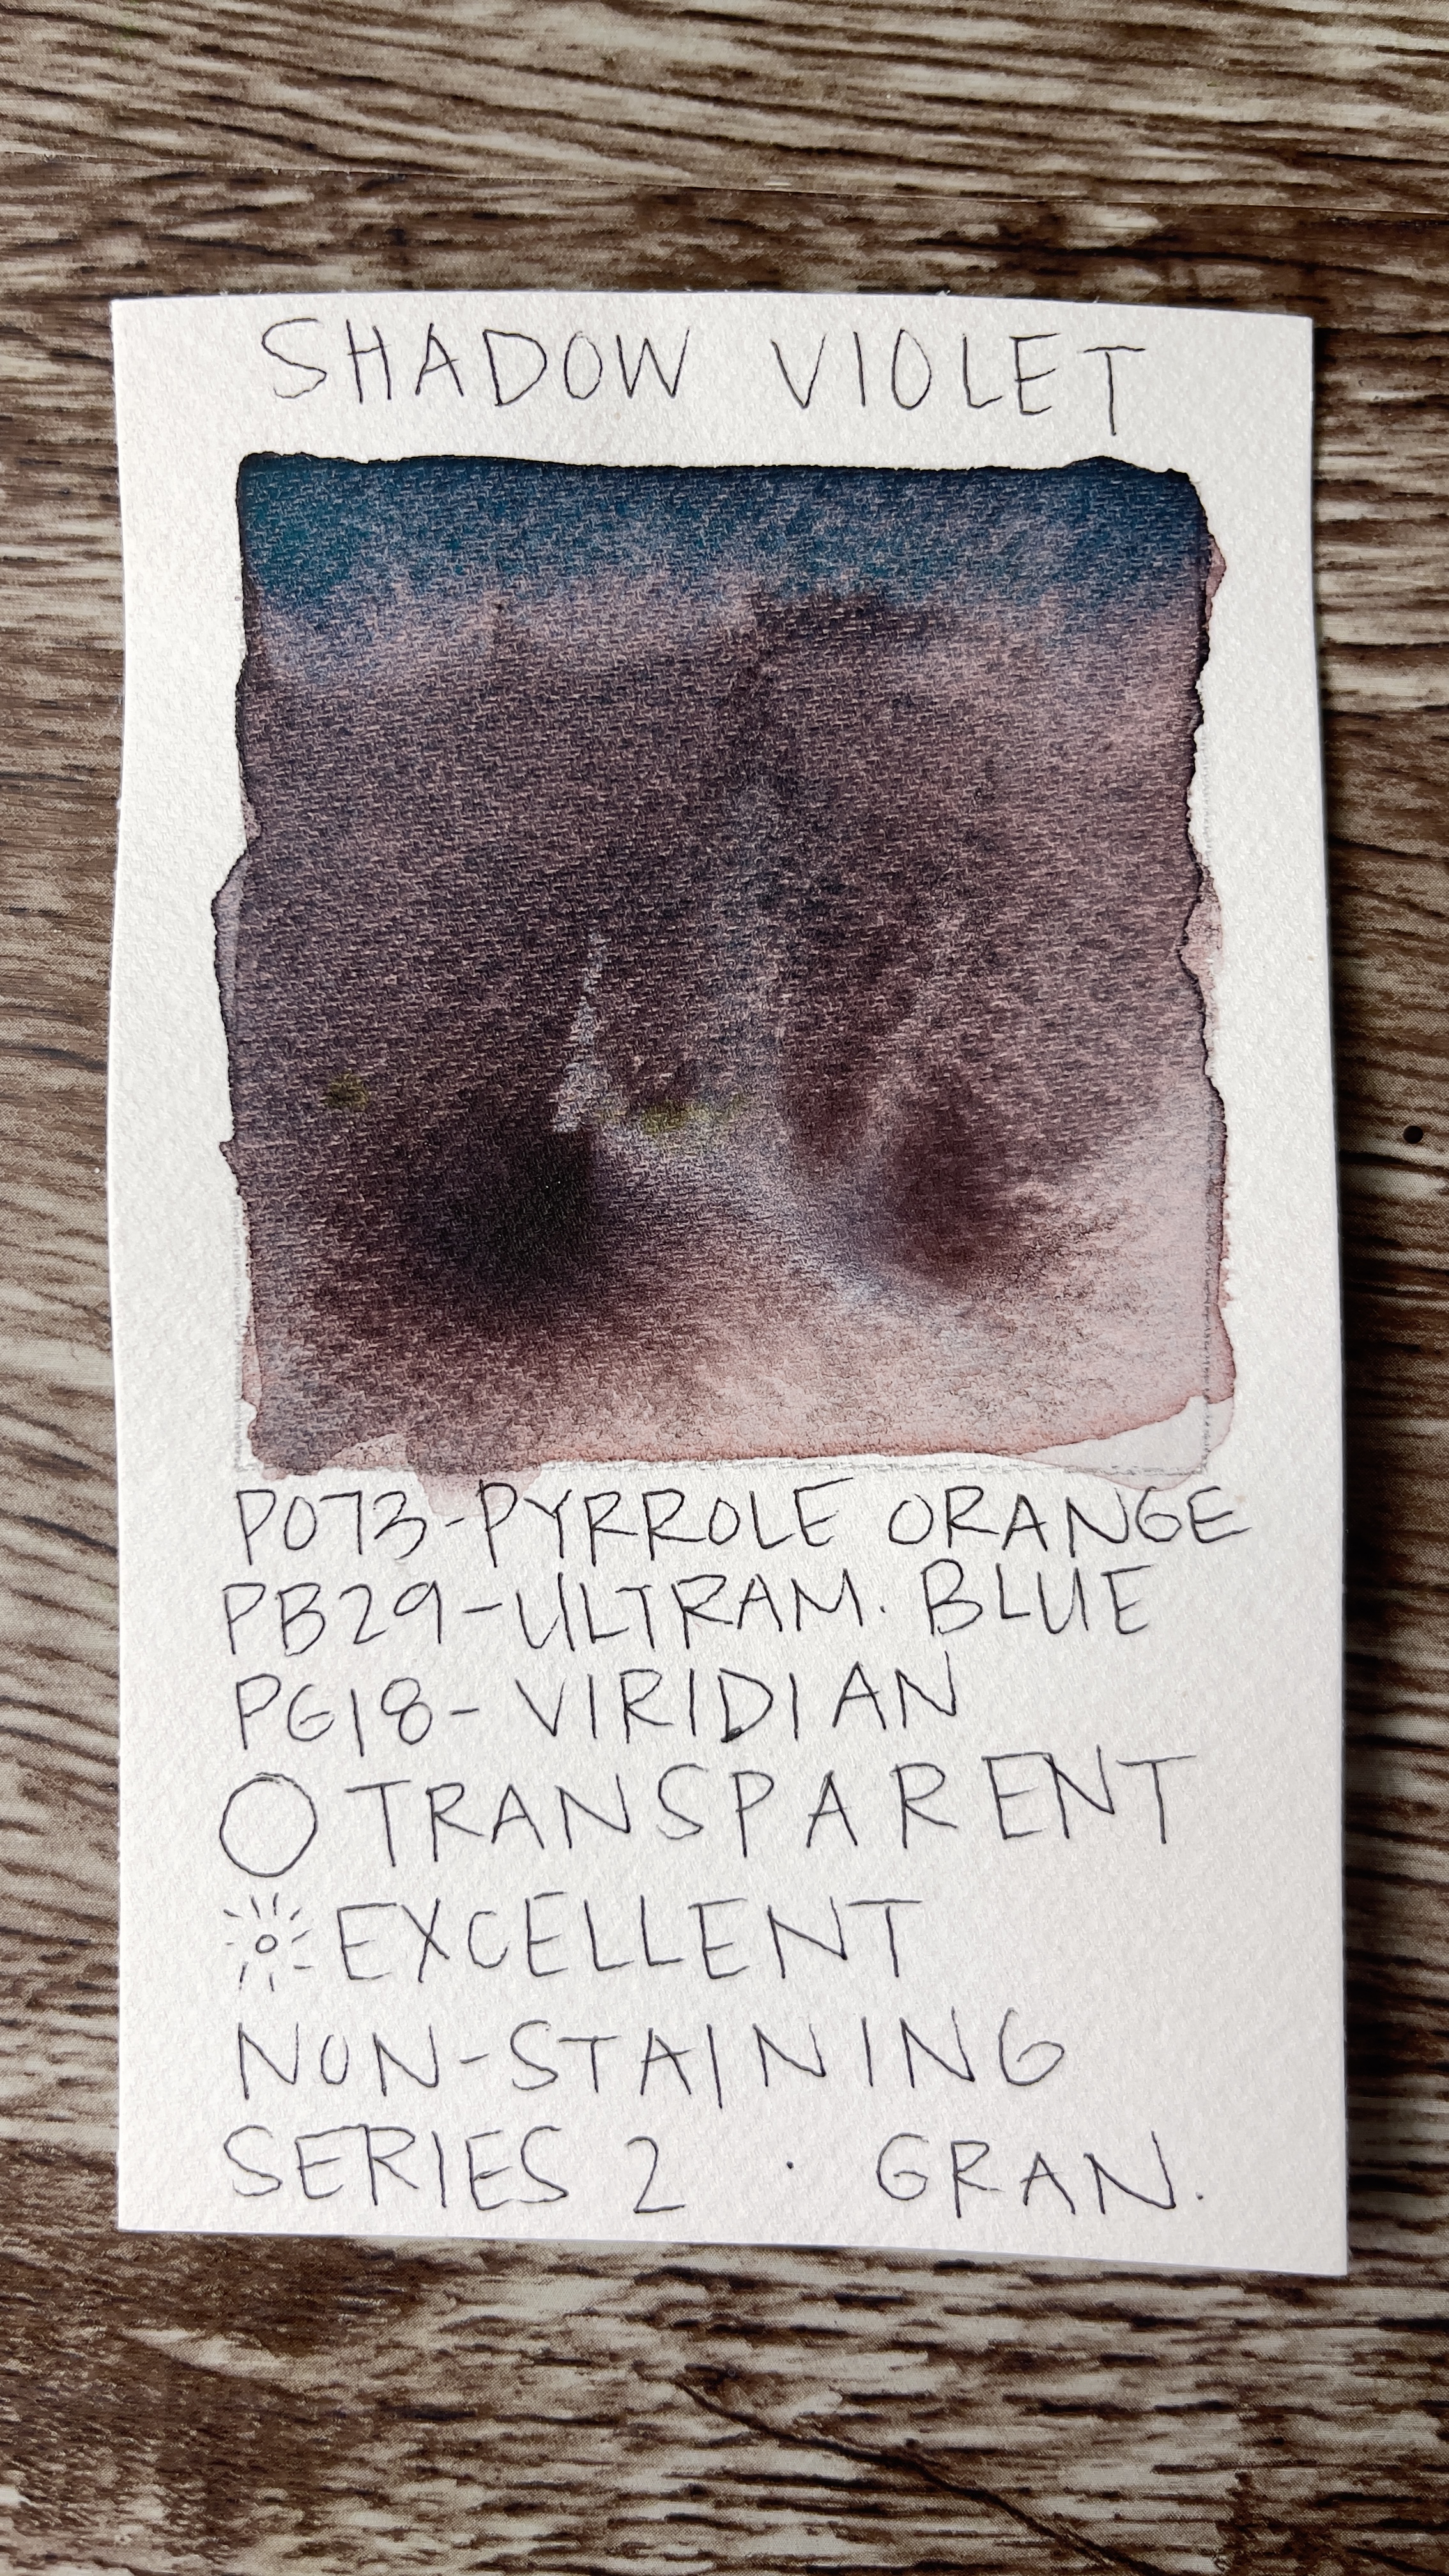 SHADOW VIOLET
PO73-PYRROLE ORANGE
PB29-ULTRAM. BLUE
PG18-VIRIDIAN
TRANSPARENT
EXCELLENT
NON-STAINING
SERIES 2 · GRAN.